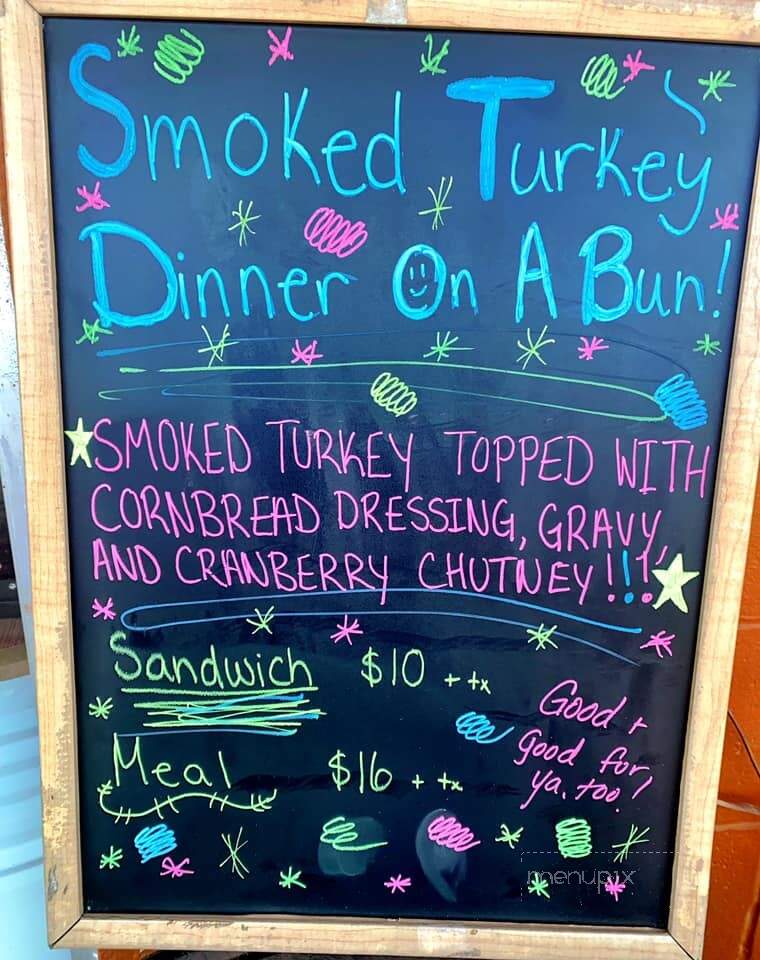 Smoked Turkey
Dinner On A Bun!
SMOKED TURKEY TOPPED WITH
CORNBREAD DRESSING, GRAVY,
AND CRANBERRY CHUTNEY!!!
Sandwich $10 + tx
Meal $16 + tx
Good +
good for
ya, too!
menupix